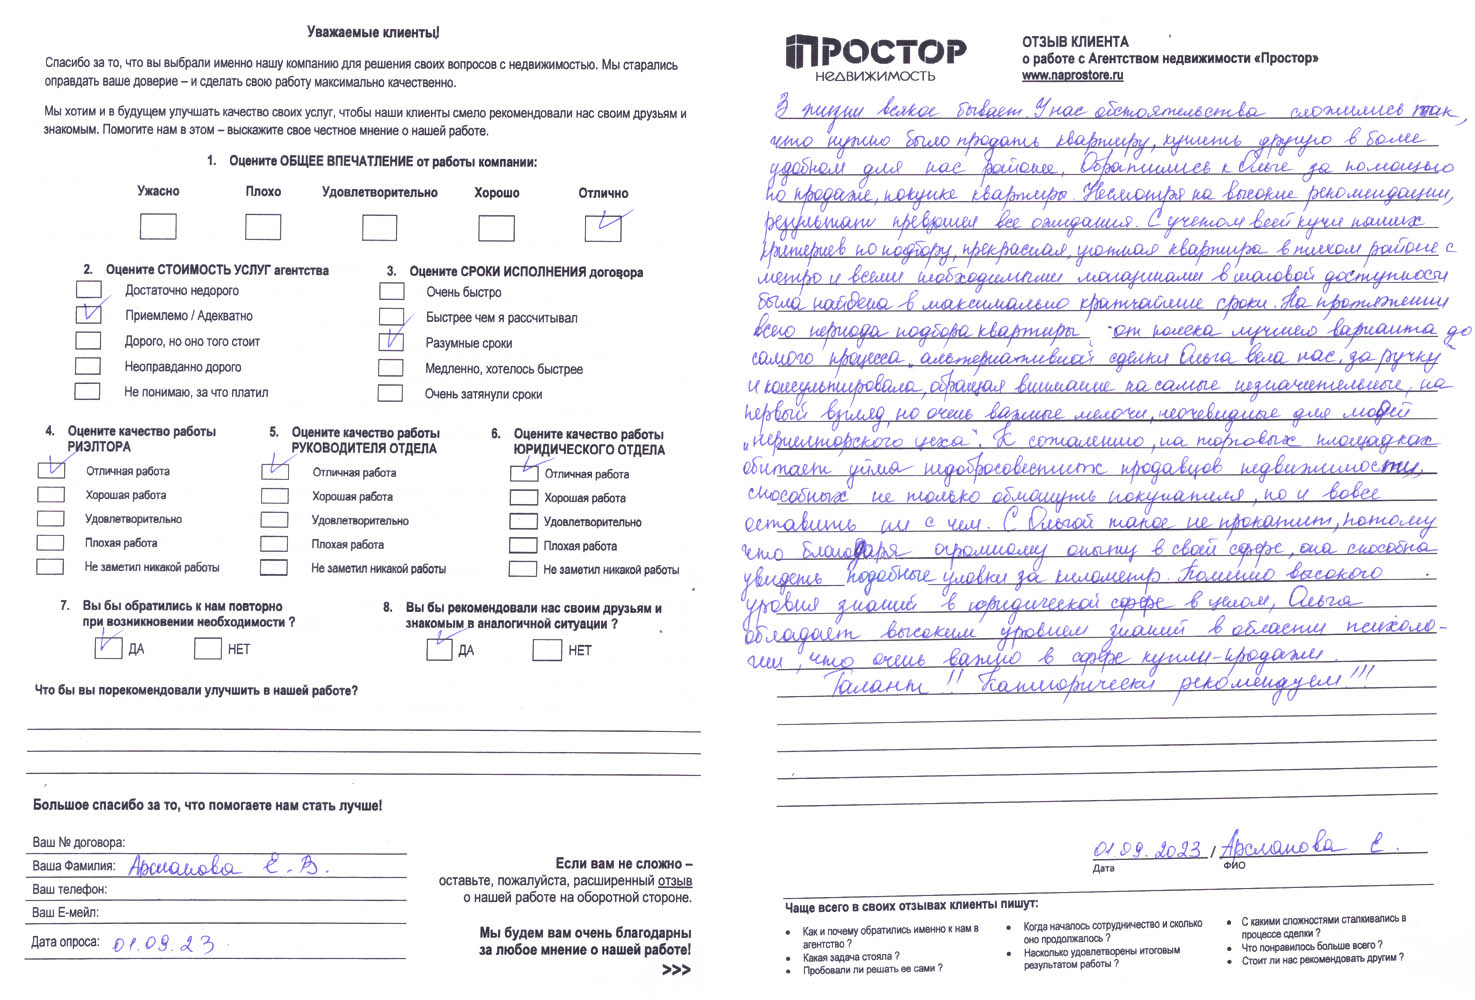 Уважаемые клиенты!
Спасибо за то, что вы выбрали именно нашу компанию для решения своих вопросов с недвижимостью. Мы старались
оправдать ваше доверие – и сделать свою работу максимально качественно.
Мы хотим и в будущем улучшать качество своих услуг, чтобы наши клиенты смело рекомендовали нас своим друзьям и
знакомым. Помогите нам в этом – выскажите свое честное мнение о нашей работе.
1. Оцените ОБЩЕЕ ВПЕЧАТЛЕНИЕ от работы компании:
Ужасно Плохо Удовлетворительно Хорошо Отлично
2. Оцените СТОИМОСТЬ УСЛУГ агентства
Достаточно недорого
Приемлемо / Адекватно
Дорого, но оно того стоит
Неоправданно дорого
Не понимаю, за что платил
3. Оцените СРОКИ ИСПОЛНЕНИЯ договора
Очень быстро
Быстрее чем я рассчитывал
Разумные сроки
Медленно, хотелось быстрее
Очень затянули сроки
4. Оцените качество работы
РИЭЛТОРА
Отличная работа
Хорошая работа
Удовлетворительно
Плохая работа
Не заметил никакой работы
5. Оцените качество работы
РУКОВОДИТЕЛЯ ОТДЕЛА
Отличная работа
Хорошая работа
Удовлетворительно
Плохая работа
Не заметил никакой работы
6. Оцените качество работы
ЮРИДИЧЕСКОГО ОТДЕЛА
Отличная работа
Хорошая работа
Удовлетворительно
Плохая работа
Не заметил никакой работы
7. Вы бы обратились к нам повторно
при возникновении необходимости ?
ДА НЕТ
8. Вы бы рекомендовали нас своим друзьям и
знакомым в аналогичной ситуации ?
ДА НЕТ
Что бы вы порекомендовали улучшить в нашей работе?
Большое спасибо за то, что помогаете нам стать лучше!
Ваш № договора:
Ваша Фамилия: Арсланова Е.В.
Ваш телефон:
Ваш Е-мейл:
Дата опроса: 01.09.23
Если вам не сложно –
оставьте, пожалуйста, расширенный отзыв
о нашей работе на оборотной стороне.
Мы будем вам очень благодарны
за любое мнение о нашей работе!
>>>
ПРОСТОР
НЕДВИЖИМОСТЬ
ОТЗЫВ КЛИЕНТА
о работе с Агентством недвижимости «Простор»
www.naprostore.ru
В жизни всякое бывает. У нас обстоятельства сложились так,
что нужно было продать квартиру, купить другую в более
удобном для нас районе. Обратились к Ольге за помощью
по продаже, покупке квартиры. Несмотря на высокие рекомендации,
результат превзошел все ожидания. С учетом всей кучи наших
критериев по подбору, прекрасная, уютная квартира в тихом районе с
метро и всеми необходимыми магазинами в шаговой доступности
была найдена в максимально кратчайшие сроки. На протяжении
всего периода подбора квартиры от поиска лучшего варианта до
самого процесса альтернативной сделки Ольга вела нас „за ручку“
и консультировала, обращая внимание на самые незначительные, на
первый взгляд, но очень важные мелочи, неочевидные для людей
„нериелторского цеха“. К сожалению, на торговых площадках
обитает уйма недобросовестных продавцов недвижимости,
способных не только обмануть покупателя, но и вовсе
оставить ни с чем. С Ольгой такое не прокатит, потому
что благодаря огромному опыту в своей сфере, она способна
увидеть подобные уловки за километр. Помимо высокого
уровня знаний в юридической сфере в целом, Ольга
обладает высоким уровнем знаний в области психоло-
гии, что очень важно в сфере купли-продажи.
Талант!! Категорически рекомендуем!!!
01.09.2023 / Арсланова Е.
Дата ФИО
Чаще всего в своих отзывах клиенты пишут:
• Как и почему обратились именно к нам в
агентство ?
• Какая задача стояла ?
• Пробовали ли решать ее сами ?
• Когда началось сотрудничество и сколько
оно продолжалось ?
• Насколько удовлетворены итоговым
результатом работы ?
• С какими сложностями сталкивались в
процессе сделки ?
• Что понравилось больше всего ?
• Стоит ли нас рекомендовать другим ?